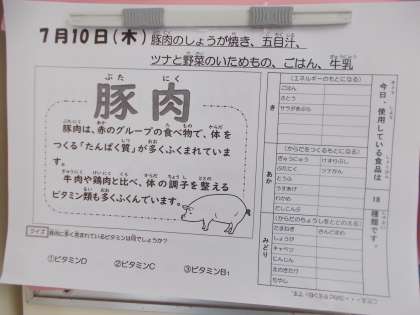 7月10日(木) 豚肉のしょうが焼き、五目汁、
ツナと野菜のいためもの、ごはん、牛乳
ぶた にく
豚肉
豚肉は、赤のグループの食べ物で、体を
つくる「たんぱく質」が多くふくまれていま
す。
牛肉や鶏肉と比べ、体の調子を整える
ビタミン類も多くふくんでいます。
クイズ 豚肉に多く含まれているビタミンは何でしょうか?
①ビタミンD ②ビタミンC ③ビタミンB1
今日、使用している食品は 18 種類です。
き
(エネルギーのもとになる)
ごはん
さとう
サラダあぶら
あか
(からだをつくるもとになる)
ぎゅうにゅう けずりぶし
ぶたにく ツナかん
とうふ
うすあげ
わかめ
だしこんぶ
みどり
(からだのちょうしをととのえる)
たまねぎ さんどまめ
しょうが
キャベツ
にんじん
えのきたけ
もやし